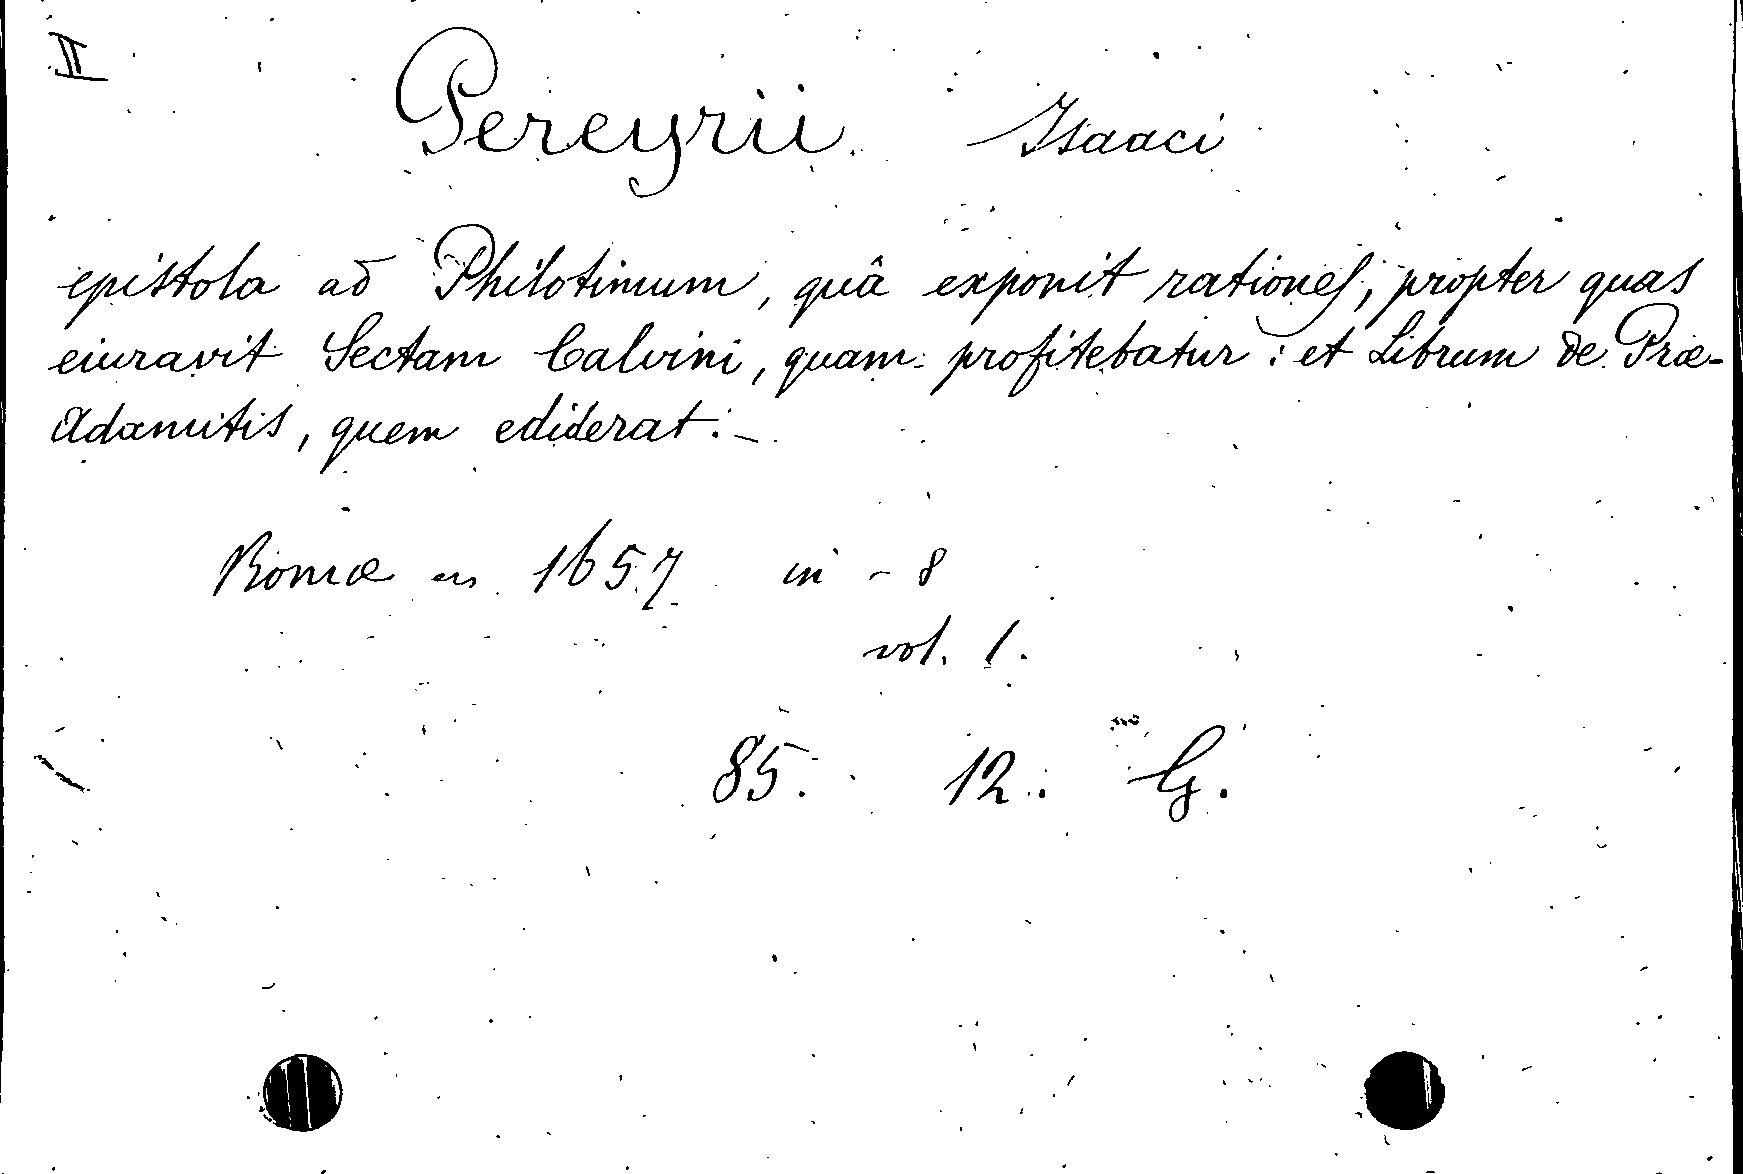 II
Pereyrii Isaaci
epistola ad Philotimum, quâ exponit rationes, propter quas
eiuravit Sectam Calvini, quam profitebatur: et Librum de Præ-
Adamitis, quem ediderat. -
Romæ en 1657 in-8
vol. 1.
85. 12. G.